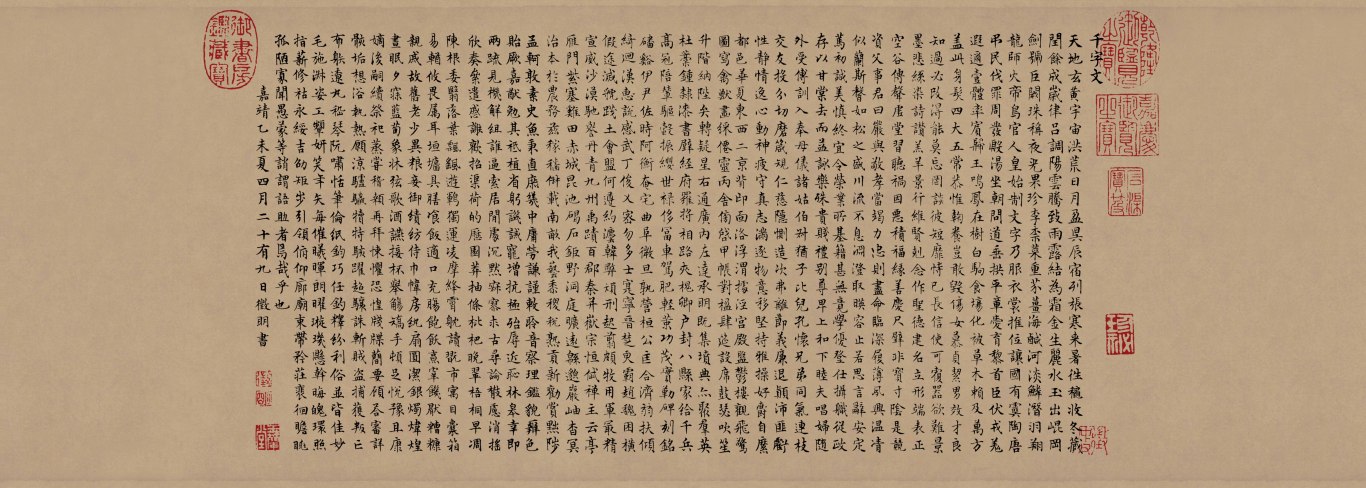 千字文
天地玄黃宇宙洪荒日月盈昃辰宿列張寒來暑往穐收冬藏
閏餘成歲律呂調陽雲騰致雨露結為霜金生麗水玉出崐岡
劍號巨闕珠稱夜光果珍李柰菜重芥薑海鹹河淡鱗潛羽翔
龍師火帝鳥官人皇始制文字乃服衣裳推位讓國有虞陶唐
弔民伐罪周發殷湯坐朝問道垂拱平章愛育黎首臣伏戎羌
遐邇壹體率賓歸王鳴鳳在樹白駒食場化被草木賴及萬方
蓋此身髮四大五常恭惟鞠養豈敢毀傷女慕貞絜男效才良
知過必改得能莫忘罔談彼短靡恃己長信使可覆器欲難量
墨悲絲染詩讚羔羊景行維賢剋念作聖德建名立形端表正
空谷傳聲虛堂習聽禍因惡積福緣善慶尺璧非寶寸陰是競
資父事君曰嚴與敬孝當竭力忠則盡命臨深履薄夙興溫凊
似蘭斯馨如松之盛川流不息淵澄取暎容止若思言辭安定
篤初誠美慎終宜令榮業所基籍甚無竟學優登仕攝職從政
存以甘棠去而益詠樂殊貴賤禮別尊卑上和下睦夫唱婦隨
外受傅訓入奉母儀諸姑伯叔猶子比兒孔懷兄弟同氣連枝
交友投分切磨箴規仁慈隱惻造次弗離節義廉退顛沛匪虧
性靜情逸心動神疲守真志滿逐物意移堅持雅操好爵自縻
都邑華夏東西二京背邙面洛浮渭據涇宮殿盤鬱樓觀飛驚
圖寫禽獸畫綵僊靈丙舍傍啓甲帳對楹肆筵設席鼓瑟吹笙
升階納陛弁轉疑星右通廣內左達承明既集墳典亦聚群英
杜稾鍾隸漆書壁經府羅將相路俠槐卿戶封八縣家給千兵
高冠陪輦驅轂振纓世祿侈富車駕肥輕策功茂實勒碑刻銘
磻谿伊尹佐時阿衡奄宅曲阜微旦孰營桓公匡合濟弱扶傾
綺迴漢惠說感武丁俊乂密勿多士寔寧晉楚更霸趙魏困橫
假途滅虢踐土會盟何遵約法韓弊煩刑起翦頗牧用軍最精
宣威沙漠馳譽丹青九州禹蹟百郡秦并嶽宗恒岱禪主云亭
雁門紫塞雞田赤城昆池碣石鉅野洞庭曠遠緜邈巖岫杳冥
治本於農務茲稼穡俶載南畝我藝黍稷稅熟貢新勸賞黜陟
孟軻敦素史魚秉直庶幾中庸勞謙謹敕聆音察理鑑貌辨色
貽厥嘉猷勉其祗植省躬譏誡寵增抗極殆辱近恥林皋幸即
兩疏見機解組誰逼索居閒處沉默寂寥求古尋論散慮逍搖
欣奏累遣慼謝歡招渠荷的歷園莽抽條枇杷晚翠梧桐早凋
陳根委翳落葉飄颻遊鵾獨運凌摩絳霄耽讀翫市寓目囊箱
易輶攸畏屬耳垣墻具膳餐飯適口充腸飽飫烹宰饑厭糟糠
親戚故舊老少異糧妾御績紡侍巾帷房紈扇圓潔銀燭煒煌
晝眠夕寐藍筍象牀弦歌酒讌接杯舉觴矯手頓足悅豫且康
嫡後嗣續祭祀蒸嘗稽顙再拜悚懼恐惶牋牒簡要顧答審詳
骸垢想浴執熱願涼驢騾犢特駭躍超驤誅斬賊盜捕獲叛亡
布躲遼丸嵇琴阮嘯恬筆倫紙鈞巧任釣釋紛利俗並皆佳妙
毛施淑姿工顰妍笑年矢每催曦暉朗曜璇璣懸斡晦魄環照
指薪修祜永綏吉劭矩步引領俯仰廊廟束帶矜莊裵徊瞻眺
孤陋寡聞愚蒙等誚謂語助者焉哉乎也
嘉靖乙未夏四月二十有九日徵明書
御書房鑑藏寶
乾隆御覽之寶
嘉慶御覽之寶